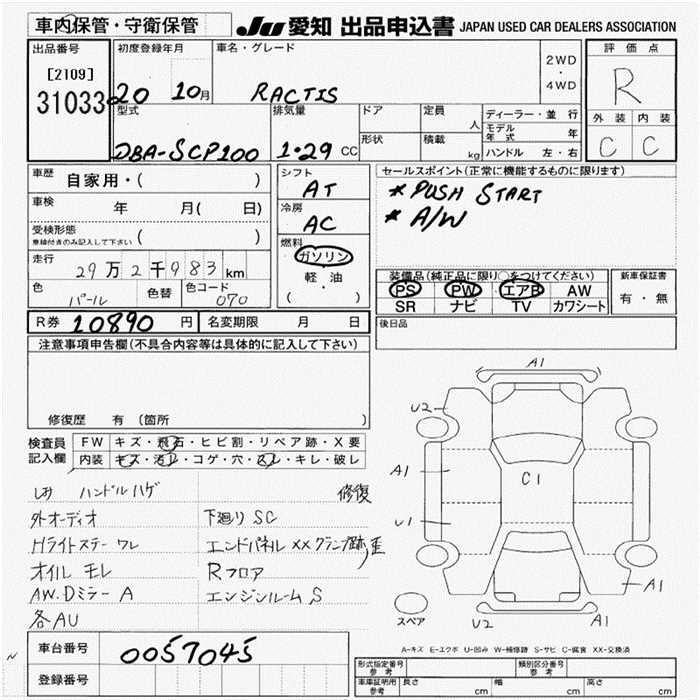 車内保管・守衛保管
JU 愛知 出品申込書 JAPAN USED CAR DEALERS ASSOCIATION
出品番号
[2109]
31033
初度登録年月
20 10月
車名・グレード
RACTIS
2WD
・
4WD
評価点
R
外装 内装
C C
型式
DBA-SCP100
排気量
1.29 CC
ドア
定員
人
形状
積載
kg
ディーラー・並行
モデル年式 年
ハンドル 左・右
車歴 自家用・( )
車検 年 月( 日)
受検形態
車検付きのみ記入して下さい ( )
走行 29万2千983km
色 パール
色替
色コード 070
シフト
AT
冷房
AC
燃料
ガソリン
軽・油
( )
セールスポイント(正常に機能するものに限ります)
* PUSH START
* A/W
装備品(純正品に限り○をつけてください)
PS PW エアB AW
SR ナビ TV カワシート
新車保証書
有・無
R券 10890 円
名変期限 月 日
後日品
注意事項申告欄(不具合内容等は具体的に記入して下さい)
修復歴 有(箇所 )
検査員記入欄
FW キズ・飛石・ヒビ割・リペア跡・X要
内装 キズ・汚レ・コゲ・穴・スレ・キレ・破レ
シミ ハンドルハゲ
修復
外オーディオ
下廻り SC
Hライトステー ワレ
エンドパネル XX クランプ跡、歪
オイル モレ
Rフロア
AW.Dミラー A
エンジンルーム S
各AU
A1
U2
A1
C1
U1
A1
スペア
U2
A1
A-キズ E-エクボ U-凹み W-補修跡 S-サビ C-腐食 XX-交換済
車台番号 0057045
登録番号
型式指定番号
参考
類別区分番号
参考
車庫証明用
参考
長さ cm
幅 cm
高さ cm